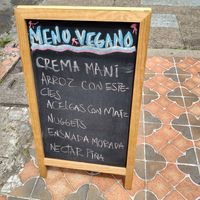 MENÚ VEGANO
CREMA MANÍ
ARROZ CON ESPE-
CIES
ACELGAS CON MAÍZ
NUGGETS
ENSALADA MORADA
NECTAR PIÑA